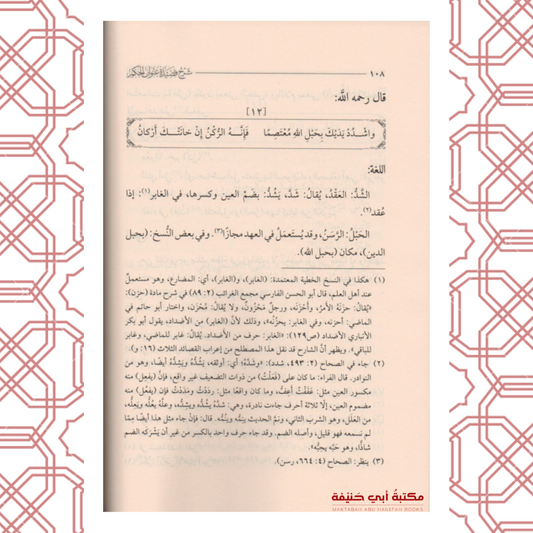 ١٠٨ شرح قصيدة عنوان الحكم
قال رحمه الله:
[١٢]
واشْدُدْ يَدَيْكَ بِحَبْلِ اللهِ مُعْتَصِمًا فَإِنَّهُ الرُّكْنُ إِنْ خَانَتْكَ أَرْكَانُ
اللغة:
الشَّدُّ: العَقْدُ، يُقالُ: شَدَّ، يَشُدُّ: بضَمِّ العين وكسرها، في الغابر(١): إذا
عُقد(٢).
الحَبْلُ: الرَّسَنُ، وقد يُستَعمَلُ في العهد مجازًا(٣). وفي بعض النُّسخ: (بحبل
الدين)، مكان (بحبل الله).
(١) هكذا في النسخ الخطية المعتمدة: (الغابر)، و(الغابر)، أي: المضارع، وهو مستعملٌ
عند أهل العلم، قال أبو الحسن الفارسي مجمع الغرائب (٢: ٨٩) في شرح مادة (حزن):
«يُقال: حزنَهُ الأمرُ، وأحْزَنَه، ورجلٌ مَحْزُونٌ، ولا يُقالُ: مُحْزَن، واختار أبو حاتم في
الماضي: أحزنه، وفي الغابر: يحزُنُه»، وذلك لأنَّ (الغابر) من الأضداد، يقول أبو بكر
الأنباري الأضداد (ص١٢٩): «الغابر: حرف من الأضداد. يُقالُ: غابر للماضي، وغابر
للباقي». ويظهر أنَّ الشارح قد نقل هذا المصطلح من إعراب القصائد الثلاث (١٦: و).
(٢) جاء في الصحاح (٢: ٤٩٣، شدد): «وشَدَّه؛ أي: أوثقه، يَشُدُّه ويَشِدُّه أيضًا، وهو من
النوادر. قال الفراء: ما كان على (فَعَلْتُ) من ذوات التضعيف غير واقع، فإنَّ (يفعِل) منه
مكسور العين مثل: عَفَفْتُ أَعِفُّ، وما كان واقعًا مثل: رَدَدْتُ ومَدَدْتُ فإن (يفعُل) منه
مضموم العين، إلَّا ثلاثة أحرف جاءت نادرة، وهي: شدَّه يَشُدُّه ويشِدُّه، وعلَّه يَعُلُّه ويَعِلُّه،
من العَلَل، وهو الشرب الثاني، ونمَّ الحديث ينُمُّه وينِمُّه. قال: فإنْ جاء مثل هذا أيضًا مِمَّا
لم نسمعه فهو قليل، وأصله الضم. وقد جاء حرف واحد بالكسر من غير أن يشركه الضم
شاذًّا، وهو حَبَّه يحِبُّه».
(٣) ينظر: الصحاح (٤: ٦٦٤، رسن).
مكتبة أبي حنيفة
MAKTABAH ABU HANEFAH BOOKS